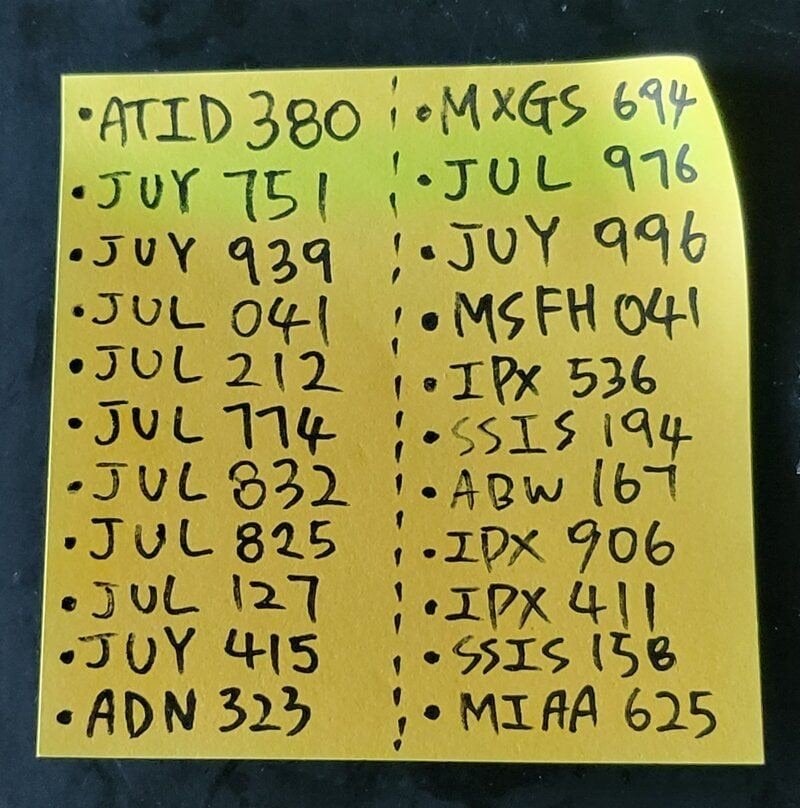 • ATID 380
• JUY 751
• JUY 939
• JUL 041
• JUL 212
• JUL 774
• JUL 832
• JUL 825
• JUL 127
• JUY 415
• ADN 323
• MXGS 694
• JUL 976
• JUY 996
• MSFH 041
• IPX 536
• SSIS 194
• ABW 167
• IPX 906
• IPX 411
• SSIS 158
• MIAA 625